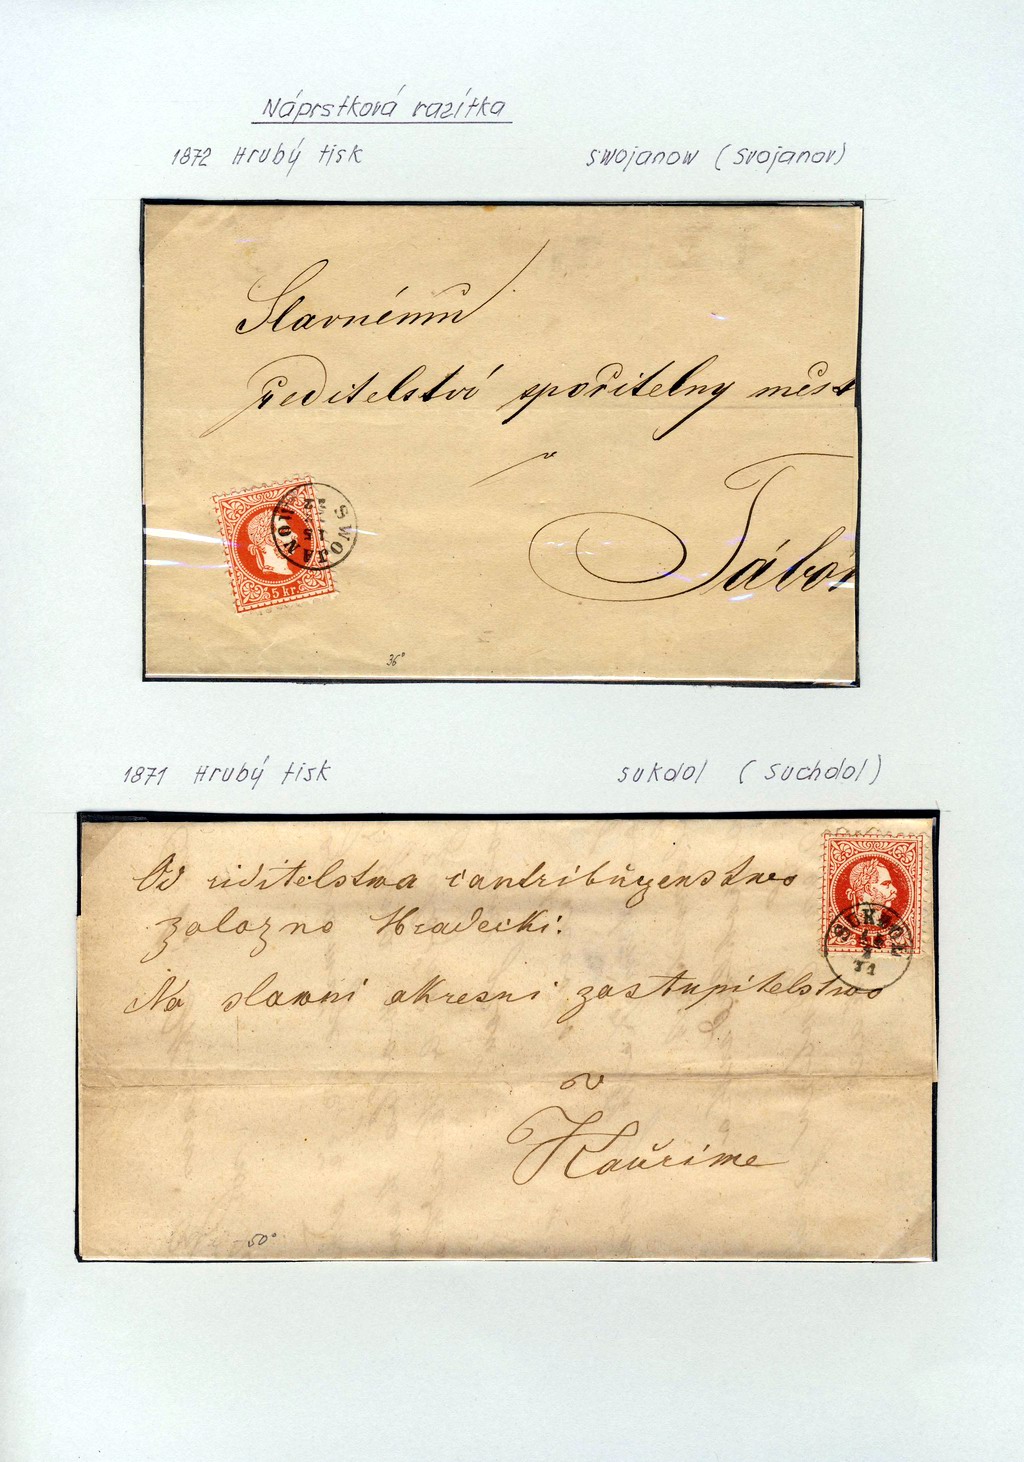 Náprstková razítka
1872 Hrubý tisk
Swojanow (Svojanov)
Slavnému
ředitelství spořitelny měst
v
Tábor
SWOJANOW
5 kr.
36°
1871 Hrubý tisk
Sukdol (Suchdol)
Od riditelstwa contribuzenstwo
zalozno Hradecki:
Na slawni okresni zastupitelstwo
v
Kauřime
SUKDOL
71
50°